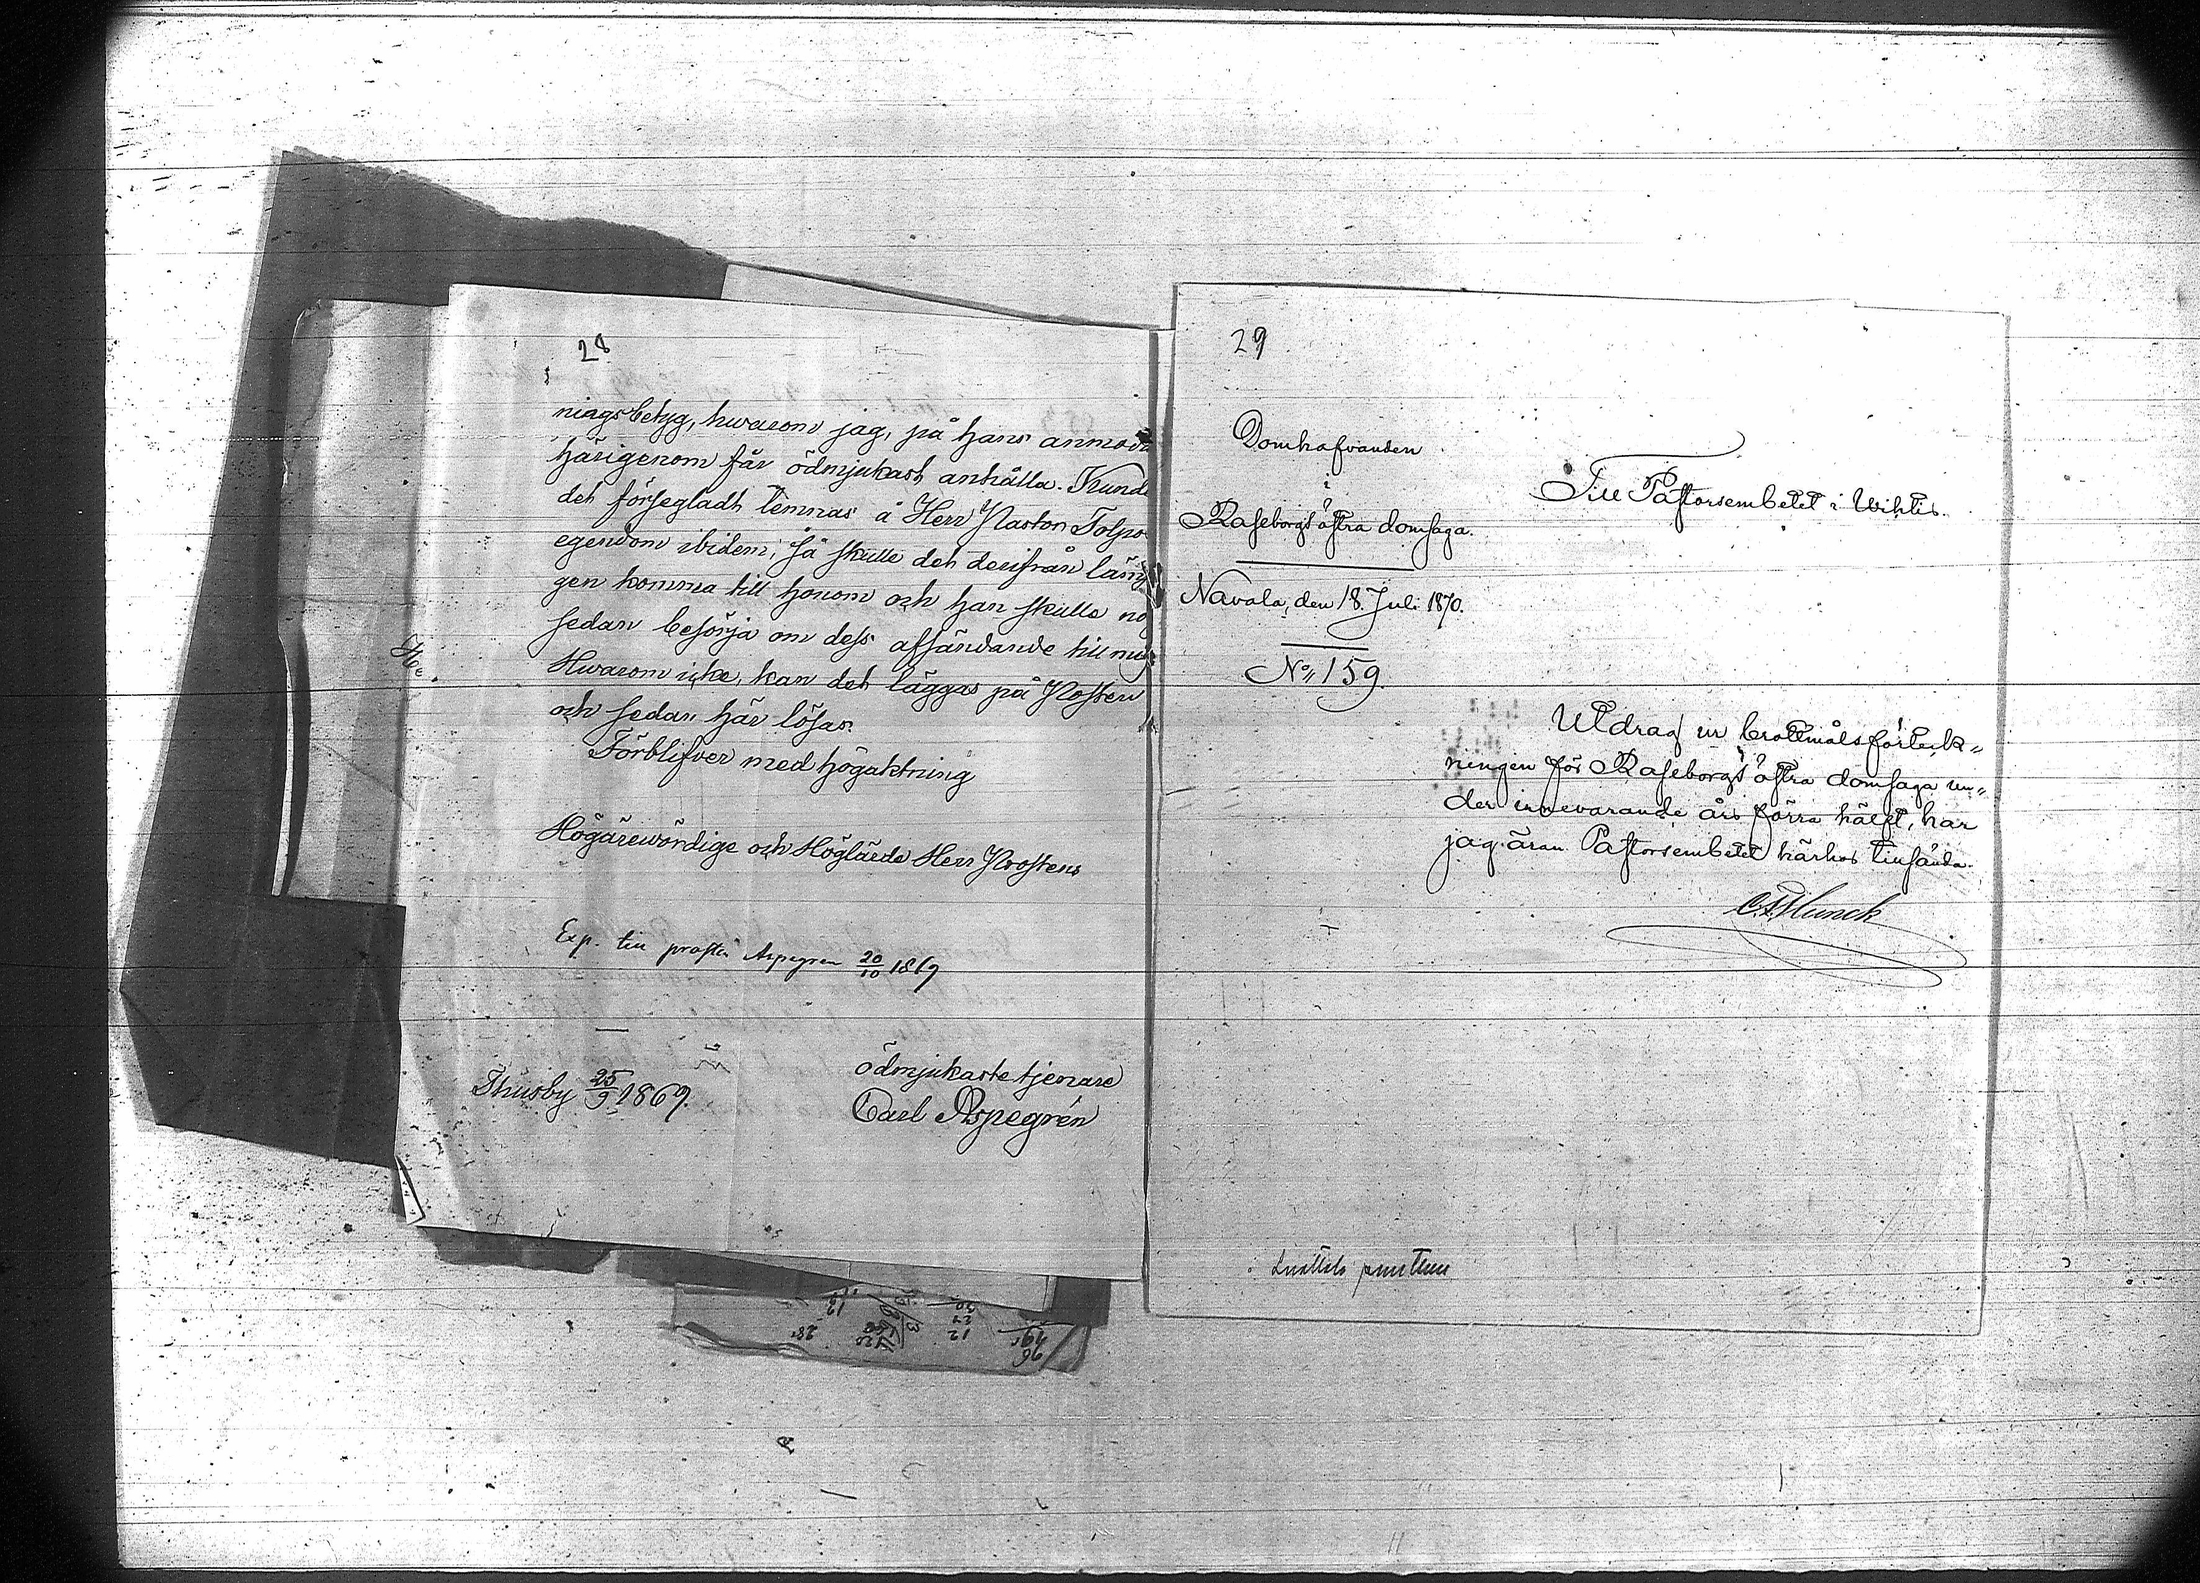 28
ningsbetyg, hwarom jag, på hans anmoda
härigenom får ödmjukast anhålla. Kunde
det försegladt lemnas å Herr Pastor Tolpo
egendom ibidem, så skulle det derifrån läng
gen komma till honom och han skulle nog
sedan besörja om dess afsändande till mig
Hwarom icke, kan det läggas på Posten
och sedan här lösas.
Förblifver med högaktning
Högärewördige och Höglärde Herr Prostens
Exp. till prosten Aspegren 20/10 1869
ödmjukaste tjenare
Thusby 25/9 1869.
Carl Aspegrén
29
Domhafvanden
i
Raseborgs östra domsaga.
Navala, den 18. Juli 1870.
No 159.
Till Pastorsembetet i Wichtis.
Utdrag ur brottmålsförteck-
ningen för Raseborgs östra domsaga un-
der innevarande års förra hälft, har
jag äran Pastorsembetet härhos tillsända.
Munck